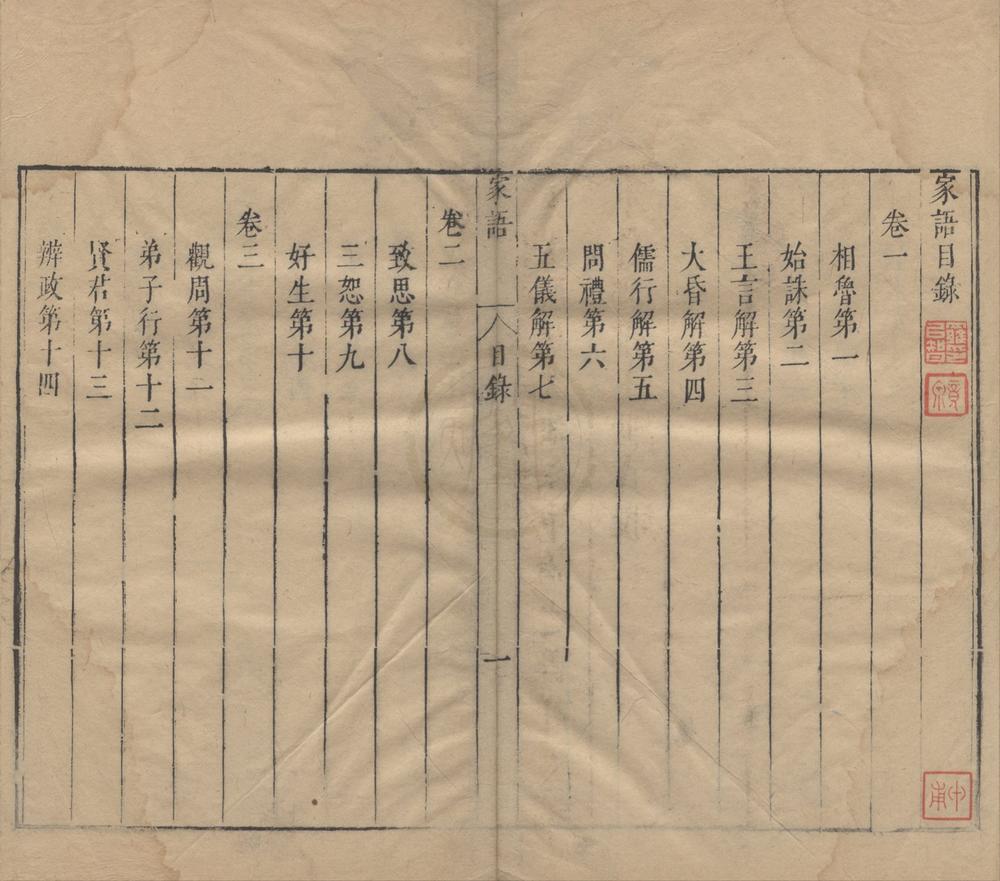 家語目錄
卷一
相魯第一
始誅第二
王言解第三
大昏解第四
儒行解第五
問禮第六
五儀解第七
家語
目錄
一
卷二
致思第八
三恕第九
好生第十
卷三
觀周第十一
弟子行第十二
賢君第十三
辨政第十四